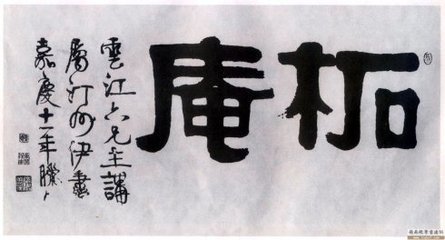 柘庵
雲江六兄主講
屬汀州伊書
嘉慶十一年臘八